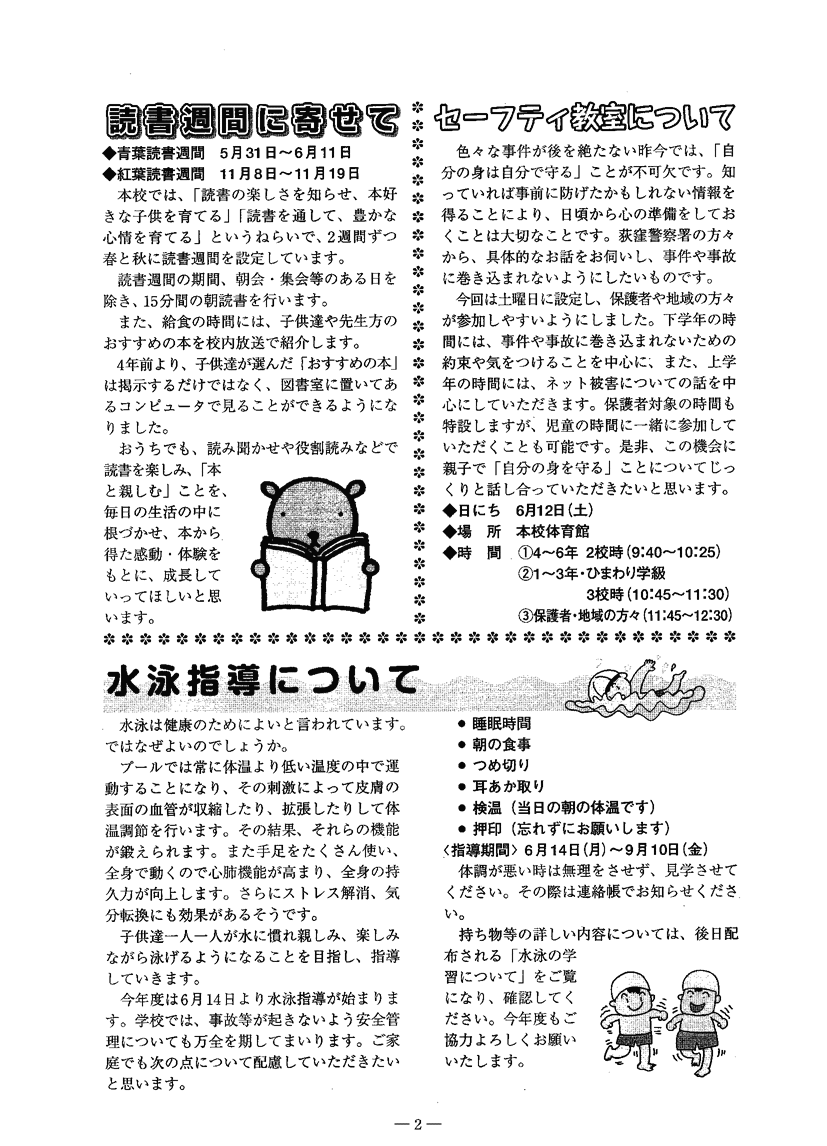 読書週間に寄せて
◆青葉読書週間　5月31日～6月11日
◆紅葉読書週間　11月8日～11月19日
　本校では、「読書の楽しさを知らせ、本好
きな子供を育てる」「読書を通して、豊かな
心情を育てる」というねらいで、2週間ずつ
春と秋に読書週間を設定しています。
　読書週間の期間、朝会・集会等のある日を
除き、15分間の朝読書を行います。
　また、給食の時間には、子供達や先生方の
おすすめの本を校内放送で紹介します。
　4年前より、子供達が選んだ「おすすめの本」
は掲示するだけではなく、図書室に置いてあ
るコンピュータで見ることができるようにな
りました。
　おうちでも、読み聞かせや役割読みなどで
読書を楽しみ、「本
と親しむ」ことを、
毎日の生活の中に
根づかせ、本から
得た感動・体験を
もとに、成長して
いってほしいと思
います。
セーフティ教室について
　色々な事件が後を絶たない昨今では、「自
分の身は自分で守る」ことが不可欠です。知
っていれば事前に防げたかもしれない情報を
得ることにより、日頃から心の準備をしてお
くことは大切なことです。荻窪警察署の方々
から、具体的なお話をお伺いし、事件や事故
に巻き込まれないようにしたいものです。
　今回は土曜日に設定し、保護者や地域の方々
が参加しやすいようにしました。下学年の時
間には、事件や事故に巻き込まれないための
約束や気をつけることを中心に、また、上学
年の時間には、ネット被害についての話を中
心にしていただきます。保護者対象の時間も
特設しますが、児童の時間に一緒に参加して
いただくことも可能です。是非、この機会に
親子で「自分の身を守る」ことについてじっ
くりと話し合っていただきたいと思います。
◆日にち　6月12日（土）
◆場　所　本校体育館
◆時　間　①4～6年　2校時（9:40～10:25）
②1～3年・ひまわり学級
3校時（10:45～11:30）
③保護者・地域の方々（11:45～12:30）
水泳指導について
　水泳は健康のためによいと言われています。
ではなぜよいのでしょうか。
　プールでは常に体温より低い温度の中で運
動することになり、その刺激によって皮膚の
表面の血管が収縮したり、拡張したりして体
温調節を行います。その結果、それらの機能
が鍛えられます。また手足をたくさん使い、
全身で動くので心肺機能が高まり、全身の持
久力が向上します。さらにストレス解消、気
分転換にも効果があるそうです。
　子供達一人一人が水に慣れ親しみ、楽しみ
ながら泳げるようになることを目指し、指導
していきます。
　今年度は6月14日より水泳指導が始まりま
す。学校では、事故等が起きないよう安全管
理についても万全を期してまいります。ご家
庭でも次の点について配慮していただきたい
と思います。
● 睡眠時間
● 朝の食事
● つめ切り
● 耳あか取り
● 検温（当日の朝の体温です）
● 押印（忘れずにお願いします）
〈指導期間〉6月14日（月）～9月10日（金）
　体調が悪い時は無理をさせず、見学させて
ください。その際は連絡帳でお知らせくださ
い。
　持ち物等の詳しい内容については、後日配
布される「水泳の学
習について」をご覧
になり、確認してく
ださい。今年度もご
協力よろしくお願い
いたします。
― 2 ―